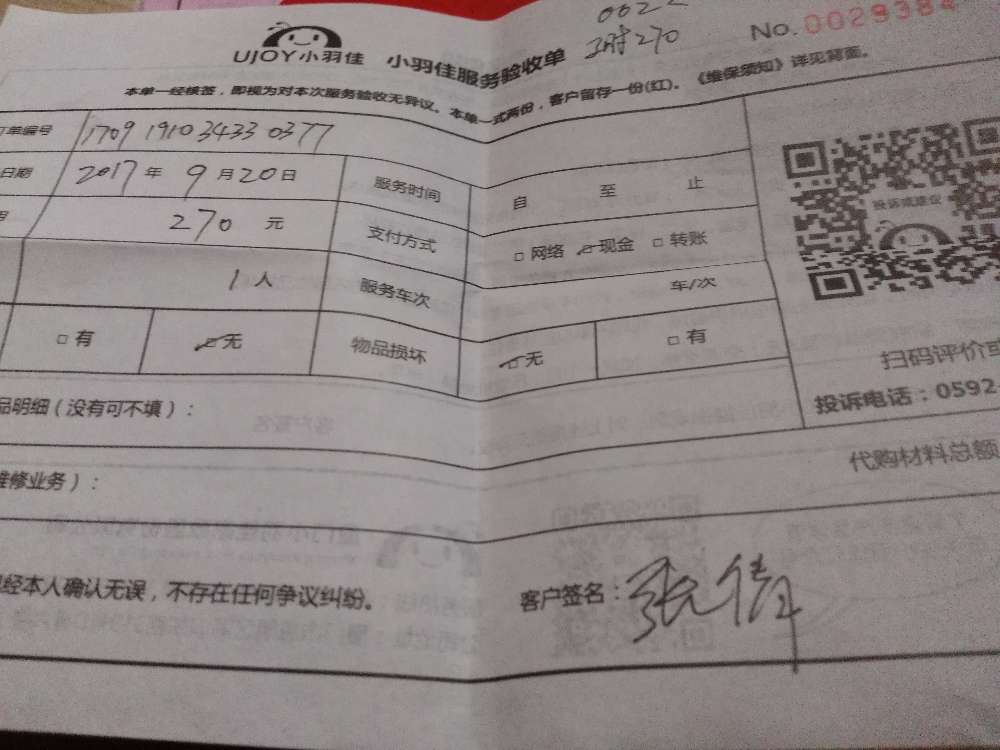 No. 0029384
270
UJOY小羽佳 小羽佳服务验收单
本单一经核签，即视为对本次服务验收无异议。本单一式两份，客户留存一份(红)。《维保须知》详见背面。
单编号 1709 1910 3433 0377
日期 2017 年 9 月 20 日 服务时间 自 至 止
270 元 支付方式 □ 网络 □ 现金 □ 转账
1 人 服务车次 车/次
□ 有 □ 无 物品损坏 □ 无 □ 有
投诉或建议
扫码评价或
投诉电话：0592-
品明细（没有可不填）：
代购材料总额
维修业务）：
经本人确认无误，不存在任何争议纠纷。 客户签名：张倩